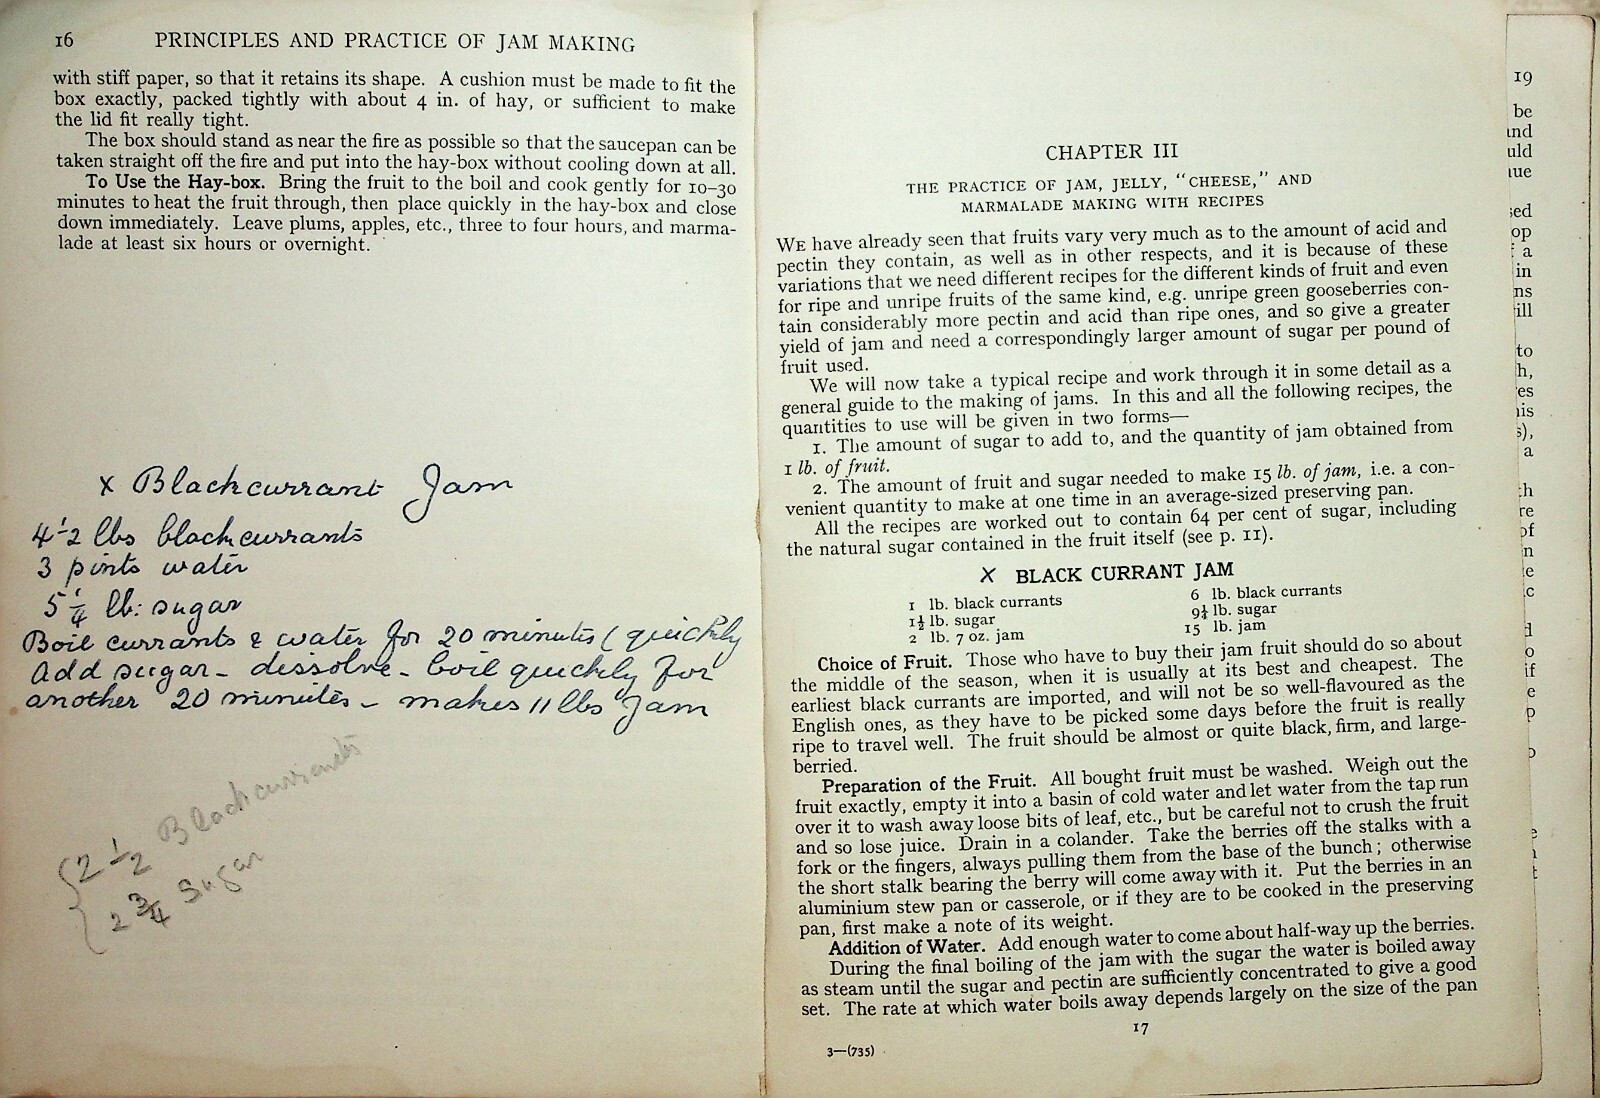 16 PRINCIPLES AND PRACTICE OF JAM MAKING
with stiff paper, so that it retains its shape. A cushion must be made to fit the
box exactly, packed tightly with about 4 in. of hay, or sufficient to make
the lid fit really tight.
The box should stand as near the fire as possible so that the saucepan can be
taken straight off the fire and put into the hay-box without cooling down at all.
To Use the Hay-box. Bring the fruit to the boil and cook gently for 10–30
minutes to heat the fruit through, then place quickly in the hay-box and close
down immediately. Leave plums, apples, etc., three to four hours, and marma-
lade at least six hours or overnight.
x Blackcurrant Jam
4 1/2 lbs blackcurrants
3 pints water
5 1/4 lb: sugar
Boil currants & water for 20 minutes (quickly
Add sugar - dissolve - boil quickly for
another 20 minutes - makes 11 lbs Jam
{2 1/2 Blackcurrants
2 3/4 Sugar
CHAPTER III
THE PRACTICE OF JAM, JELLY, "CHEESE," AND
MARMALADE MAKING WITH RECIPES
WE have already seen that fruits vary very much as to the amount of acid and
pectin they contain, as well as in other respects, and it is because of these
variations that we need different recipes for the different kinds of fruit and even
for ripe and unripe fruits of the same kind, e.g. unripe green gooseberries con-
tain considerably more pectin and acid than ripe ones, and so give a greater
yield of jam and need a correspondingly larger amount of sugar per pound of
fruit used.
We will now take a typical recipe and work through it in some detail as a
general guide to the making of jams. In this and all the following recipes, the
quantities to use will be given in two forms—
1. The amount of sugar to add to, and the quantity of jam obtained from
1 lb. of fruit.
2. The amount of fruit and sugar needed to make 15 lb. of jam, i.e. a con-
venient quantity to make at one time in an average-sized preserving pan.
All the recipes are worked out to contain 64 per cent of sugar, including
the natural sugar contained in the fruit itself (see p. 11).
X BLACK CURRANT JAM
1 lb. black currants 6 lb. black currants
1½ lb. sugar 9¼ lb. sugar
2 lb. 7 oz. jam 15 lb. jam
Choice of Fruit. Those who have to buy their jam fruit should do so about
the middle of the season, when it is usually at its best and cheapest. The
earliest black currants are imported, and will not be so well-flavoured as the
English ones, as they have to be picked some days before the fruit is really
ripe to travel well. The fruit should be almost or quite black, firm, and large-
berried.
Preparation of the Fruit. All bought fruit must be washed. Weigh out the
fruit exactly, empty it into a basin of cold water and let water from the tap run
over it to wash away loose bits of leaf, etc., but be careful not to crush the fruit
and so lose juice. Drain in a colander. Take the berries off the stalks with a
fork or the fingers, always pulling them from the base of the bunch; otherwise
the short stalk bearing the berry will come away with it. Put the berries in an
aluminium stew pan or casserole, or if they are to be cooked in the preserving
pan, first make a note of its weight.
Addition of Water. Add enough water to come about half-way up the berries.
During the final boiling of the jam with the sugar the water is boiled away
as steam until the sugar and pectin are sufficiently concentrated to give a good
set. The rate at which water boils away depends largely on the size of the pan
17
3—(735)
19
be